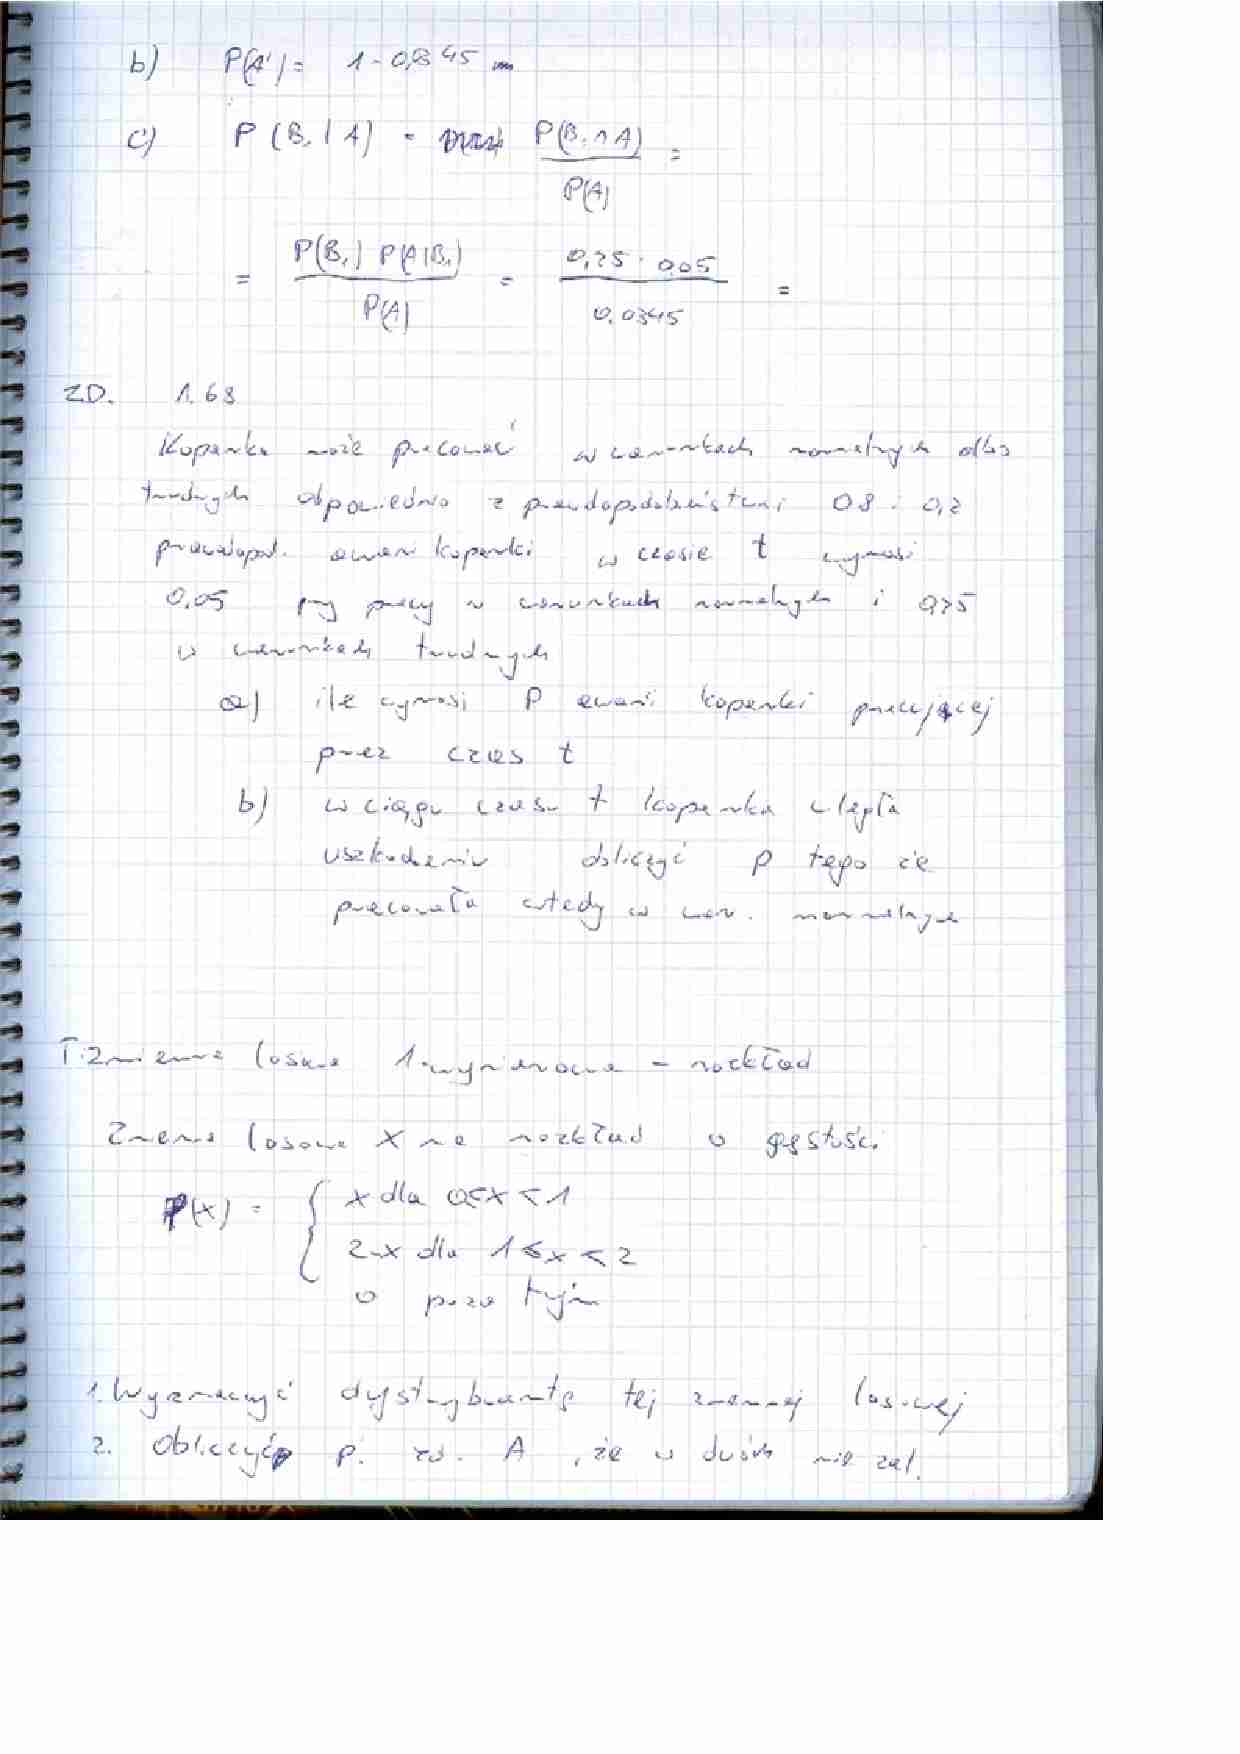 b) P(A') = 1 - 0,0345
c) P(B₁|A) = P(B₁∩A) / P(A) =
= P(B₁) P(A|B₁) / P(A) = 0,25 · 0,05 / 0,0345 =
ZD. 1.68
Koparka może pracować w warunkach normalnych albo
trudnych odpowiednio z prawdopodobieństwami 0,8 i 0,2
prawdopod. awarii koparki w czasie t wynosi
0,05 przy pracy w warunkach normalnych i
w warunkach trudnych
a) ile wynosi P awarii koparki pracującej
przez czas t
b) w ciągu czasu t koparka uległa
uszkodzeniu obliczyć p tego że
pracowała wtedy w war. normalnych
T: Zmienne losowe 1-wymiarowe - rozkład
Zmienna losowa X ma rozkład o gęstości
f(x) = { x dla 0≤x<1
2-x dla 1≤x<2
0 poza tym
1. Wyznaczyć dystrybuantę tej zmiennej losowej
2. Obliczyć p. zd. A, że w dwóch nie zal.